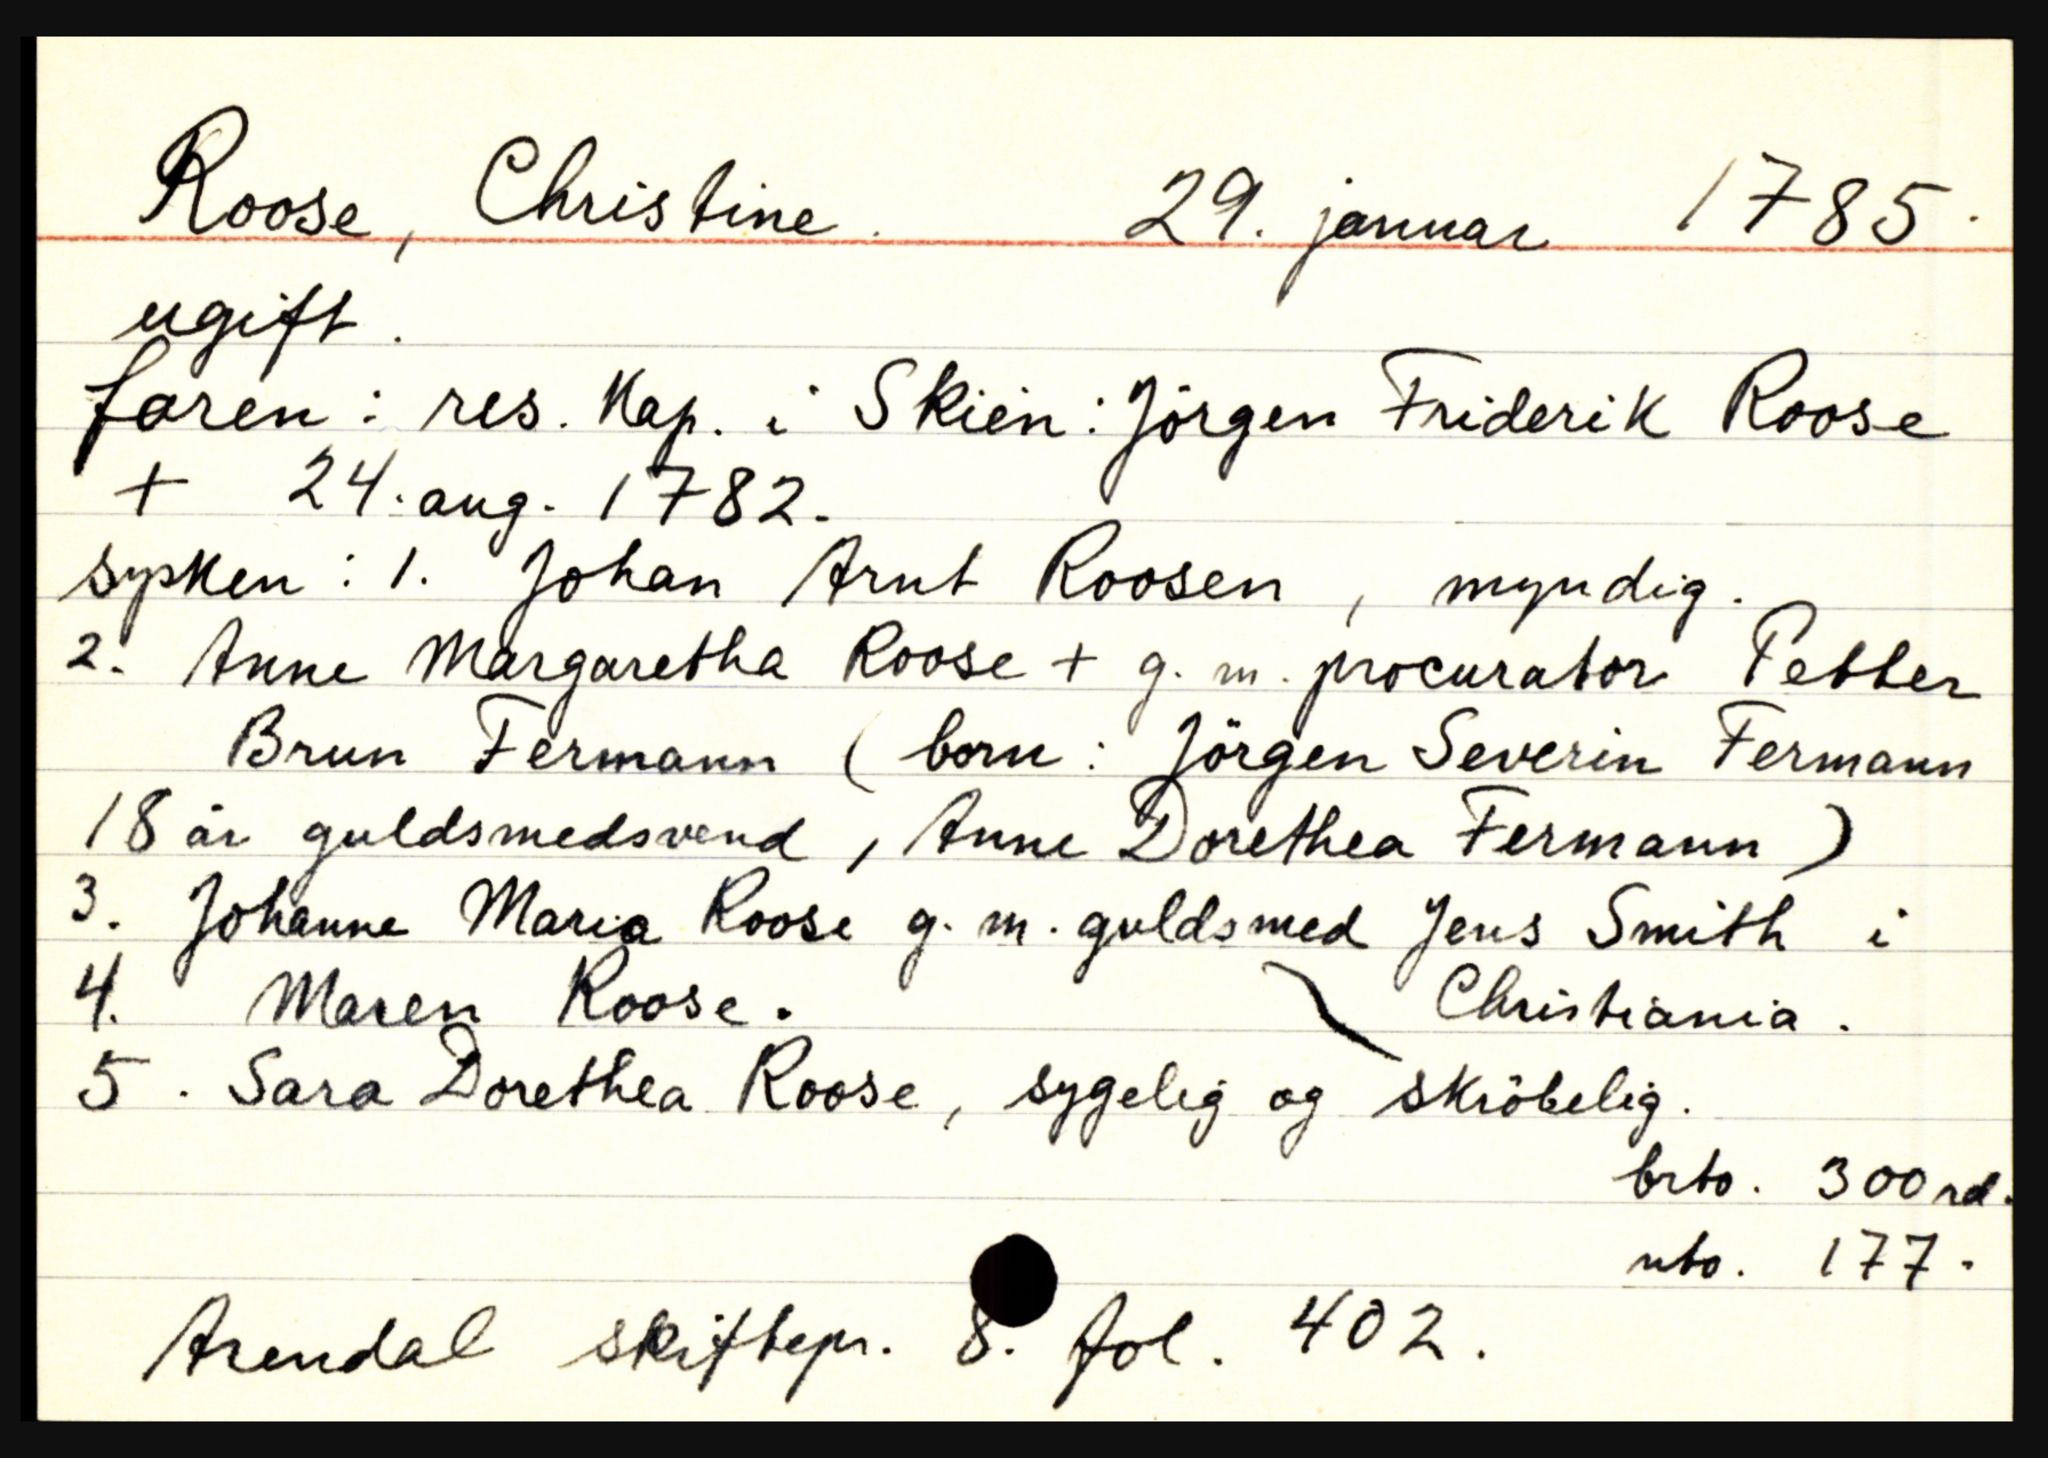 Roose, Christine. 29. januar 1785.
ugift.
faren: res. Kap. i Skien: Jörgen Friderik Roose
+ 24. aug. 1782.
sysken: 1. Johan Arnt Roosen, myndig.
2. Anne Margaretha Roose + g. m. procurator Petter
Brun Fermann (born: Jörgen Severin Fermann
18 år guldsmedsvend, Anne Dorethea Fermann)
3. Johanne Maria Roose g. m. guldsmed Jens Smith i
4. Maren Roose. Christiania.
5. Sara Dorethea Roose, sygelig og skröbelig.
brto. 300 rd.
nto. 177.
Arendal skiftepr. 8. fol. 402.